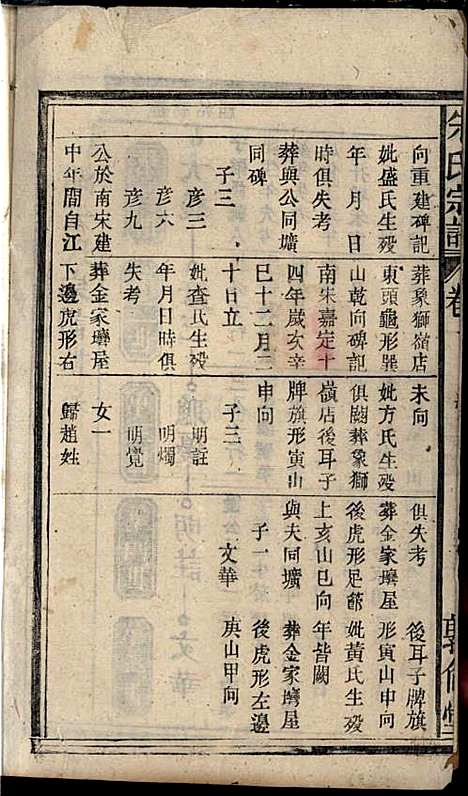 氏宗譜
卷
向重建碑記
妣盛氏生殁
年月日
時俱失考
葬與公同壙
同碑
子三
彥三
彥六
彥九
公於南宋建
中年間自江
葬象獅嶺店
東頭龜形巽
山乾向碑記
南朱嘉定十
四年歲次辛
巳十二月二
十日立
妣查氏生殁
年月日時俱
失考
葬金家塝屋
下邊虎形右
未向
妣方氏生殁
俱闕葬象獅
嶺店後耳子
牌旗形寅山
申向
子三
明註
明燭
明覺
女一
歸趙姓
俱失考
葬金家塝屋
後虎形足節
上亥山巳向
與夫同壙
子一
文華
後耳子牌旗
形寅山申向
妣黃氏生殁
年皆闕
葬金家塝屋
後虎形左邊
庚山甲向